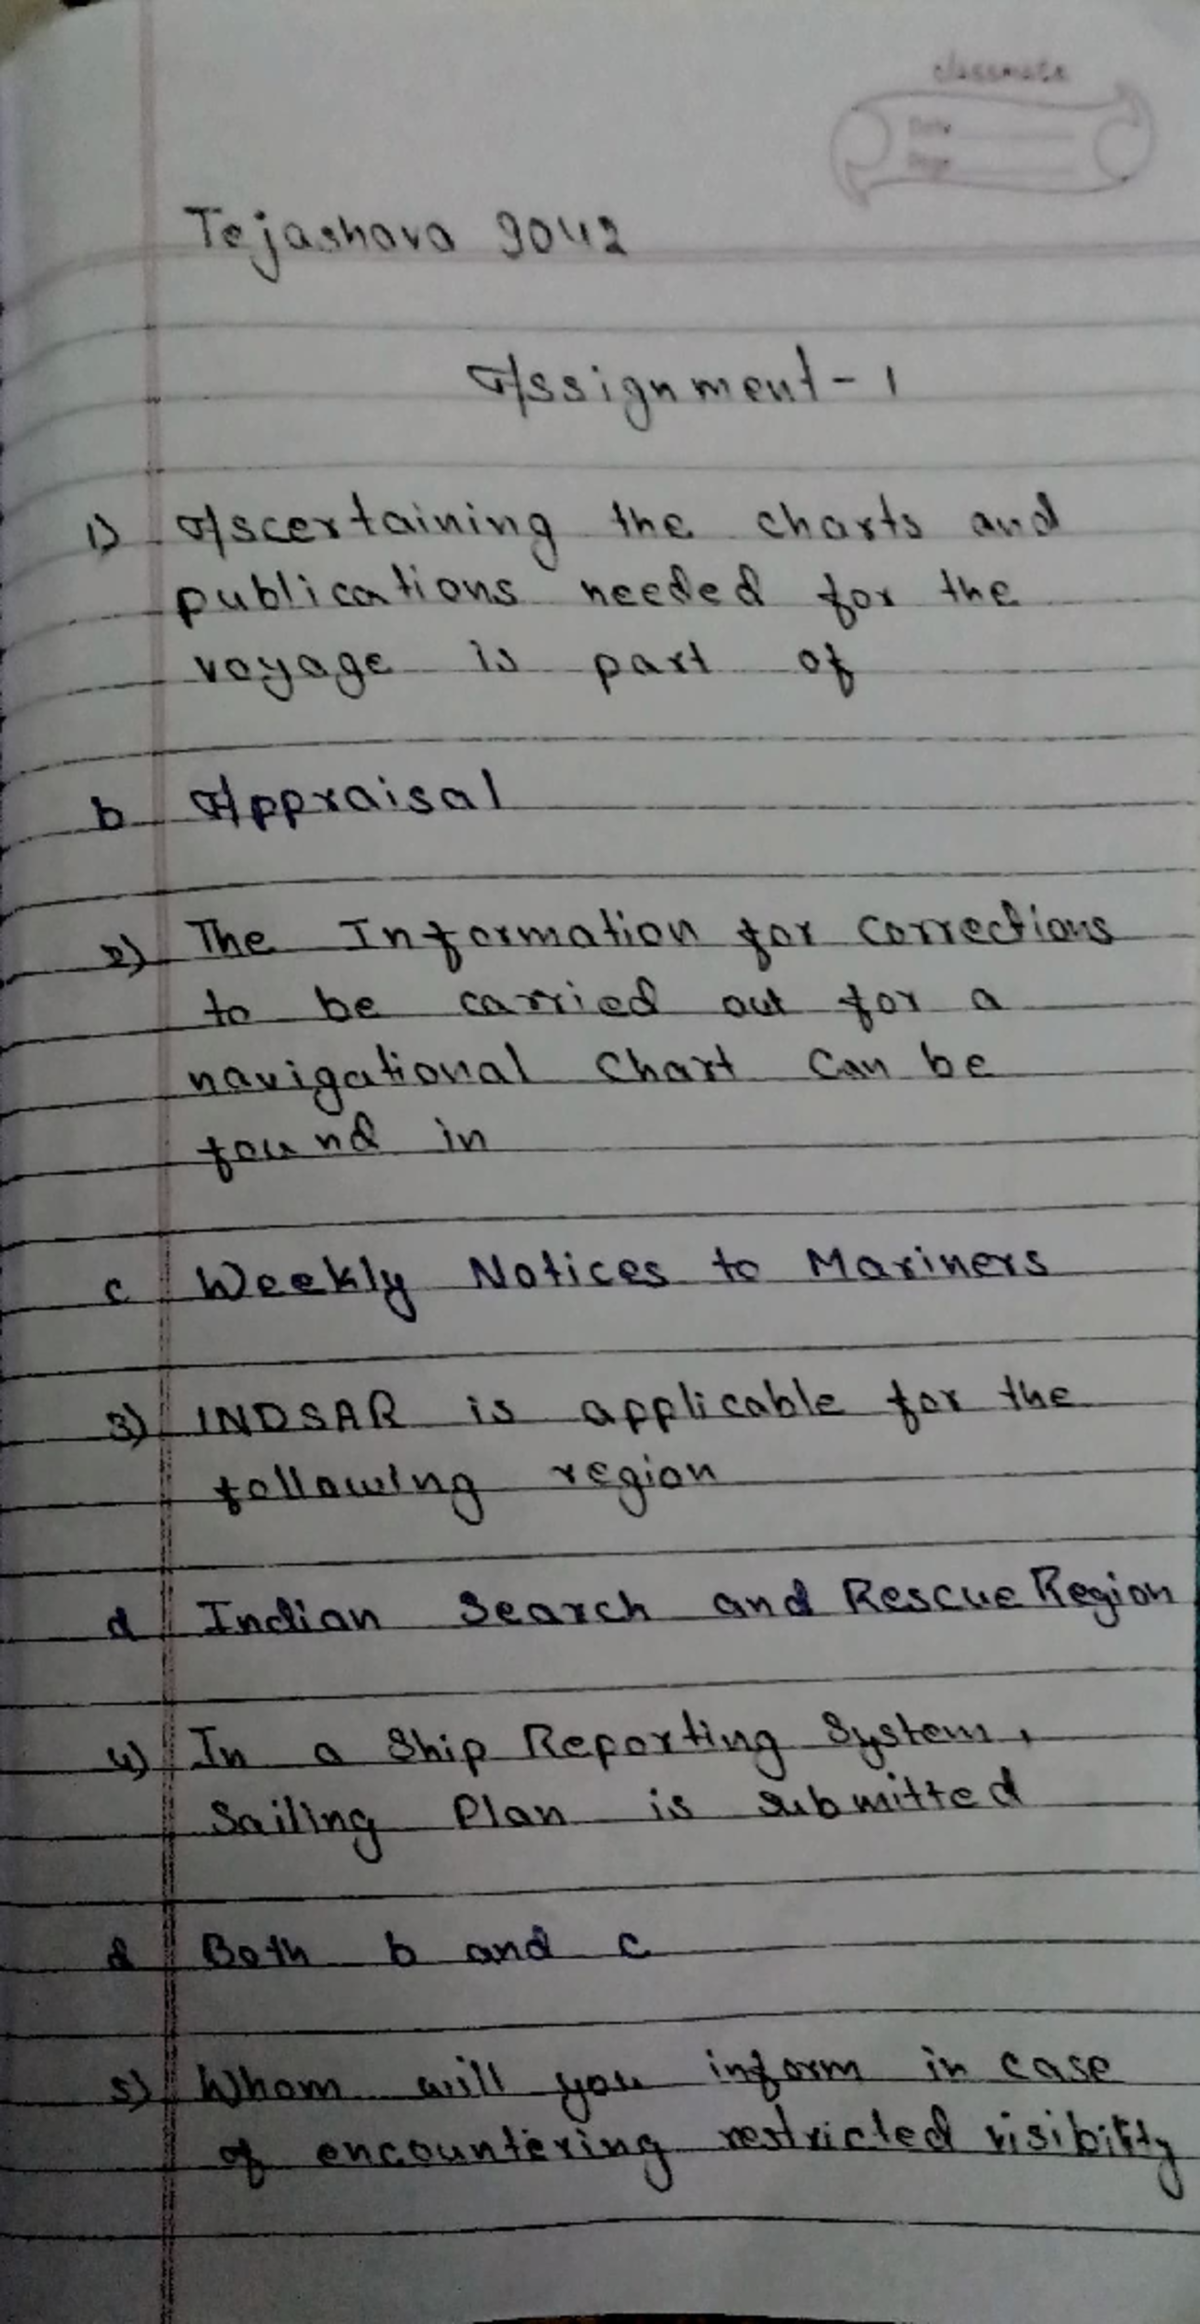 classmate
Date
Page
Tejashava 9042
Assignment - 1
1) Ascertaining the charts and
publications needed for the
voyage is part of
b Appraisal
2) The Information for corrections
to be carried out for a
navigational Chart Can be
found in
c Weekly Notices to Mariners
3) INDSAR is applicable for the
following region
d Indian Search and Rescue Region
4) In a Ship Reporting System,
Sailing Plan is submitted
d Both b and c
5) Whom will you inform in case
of encountering restricted visibility